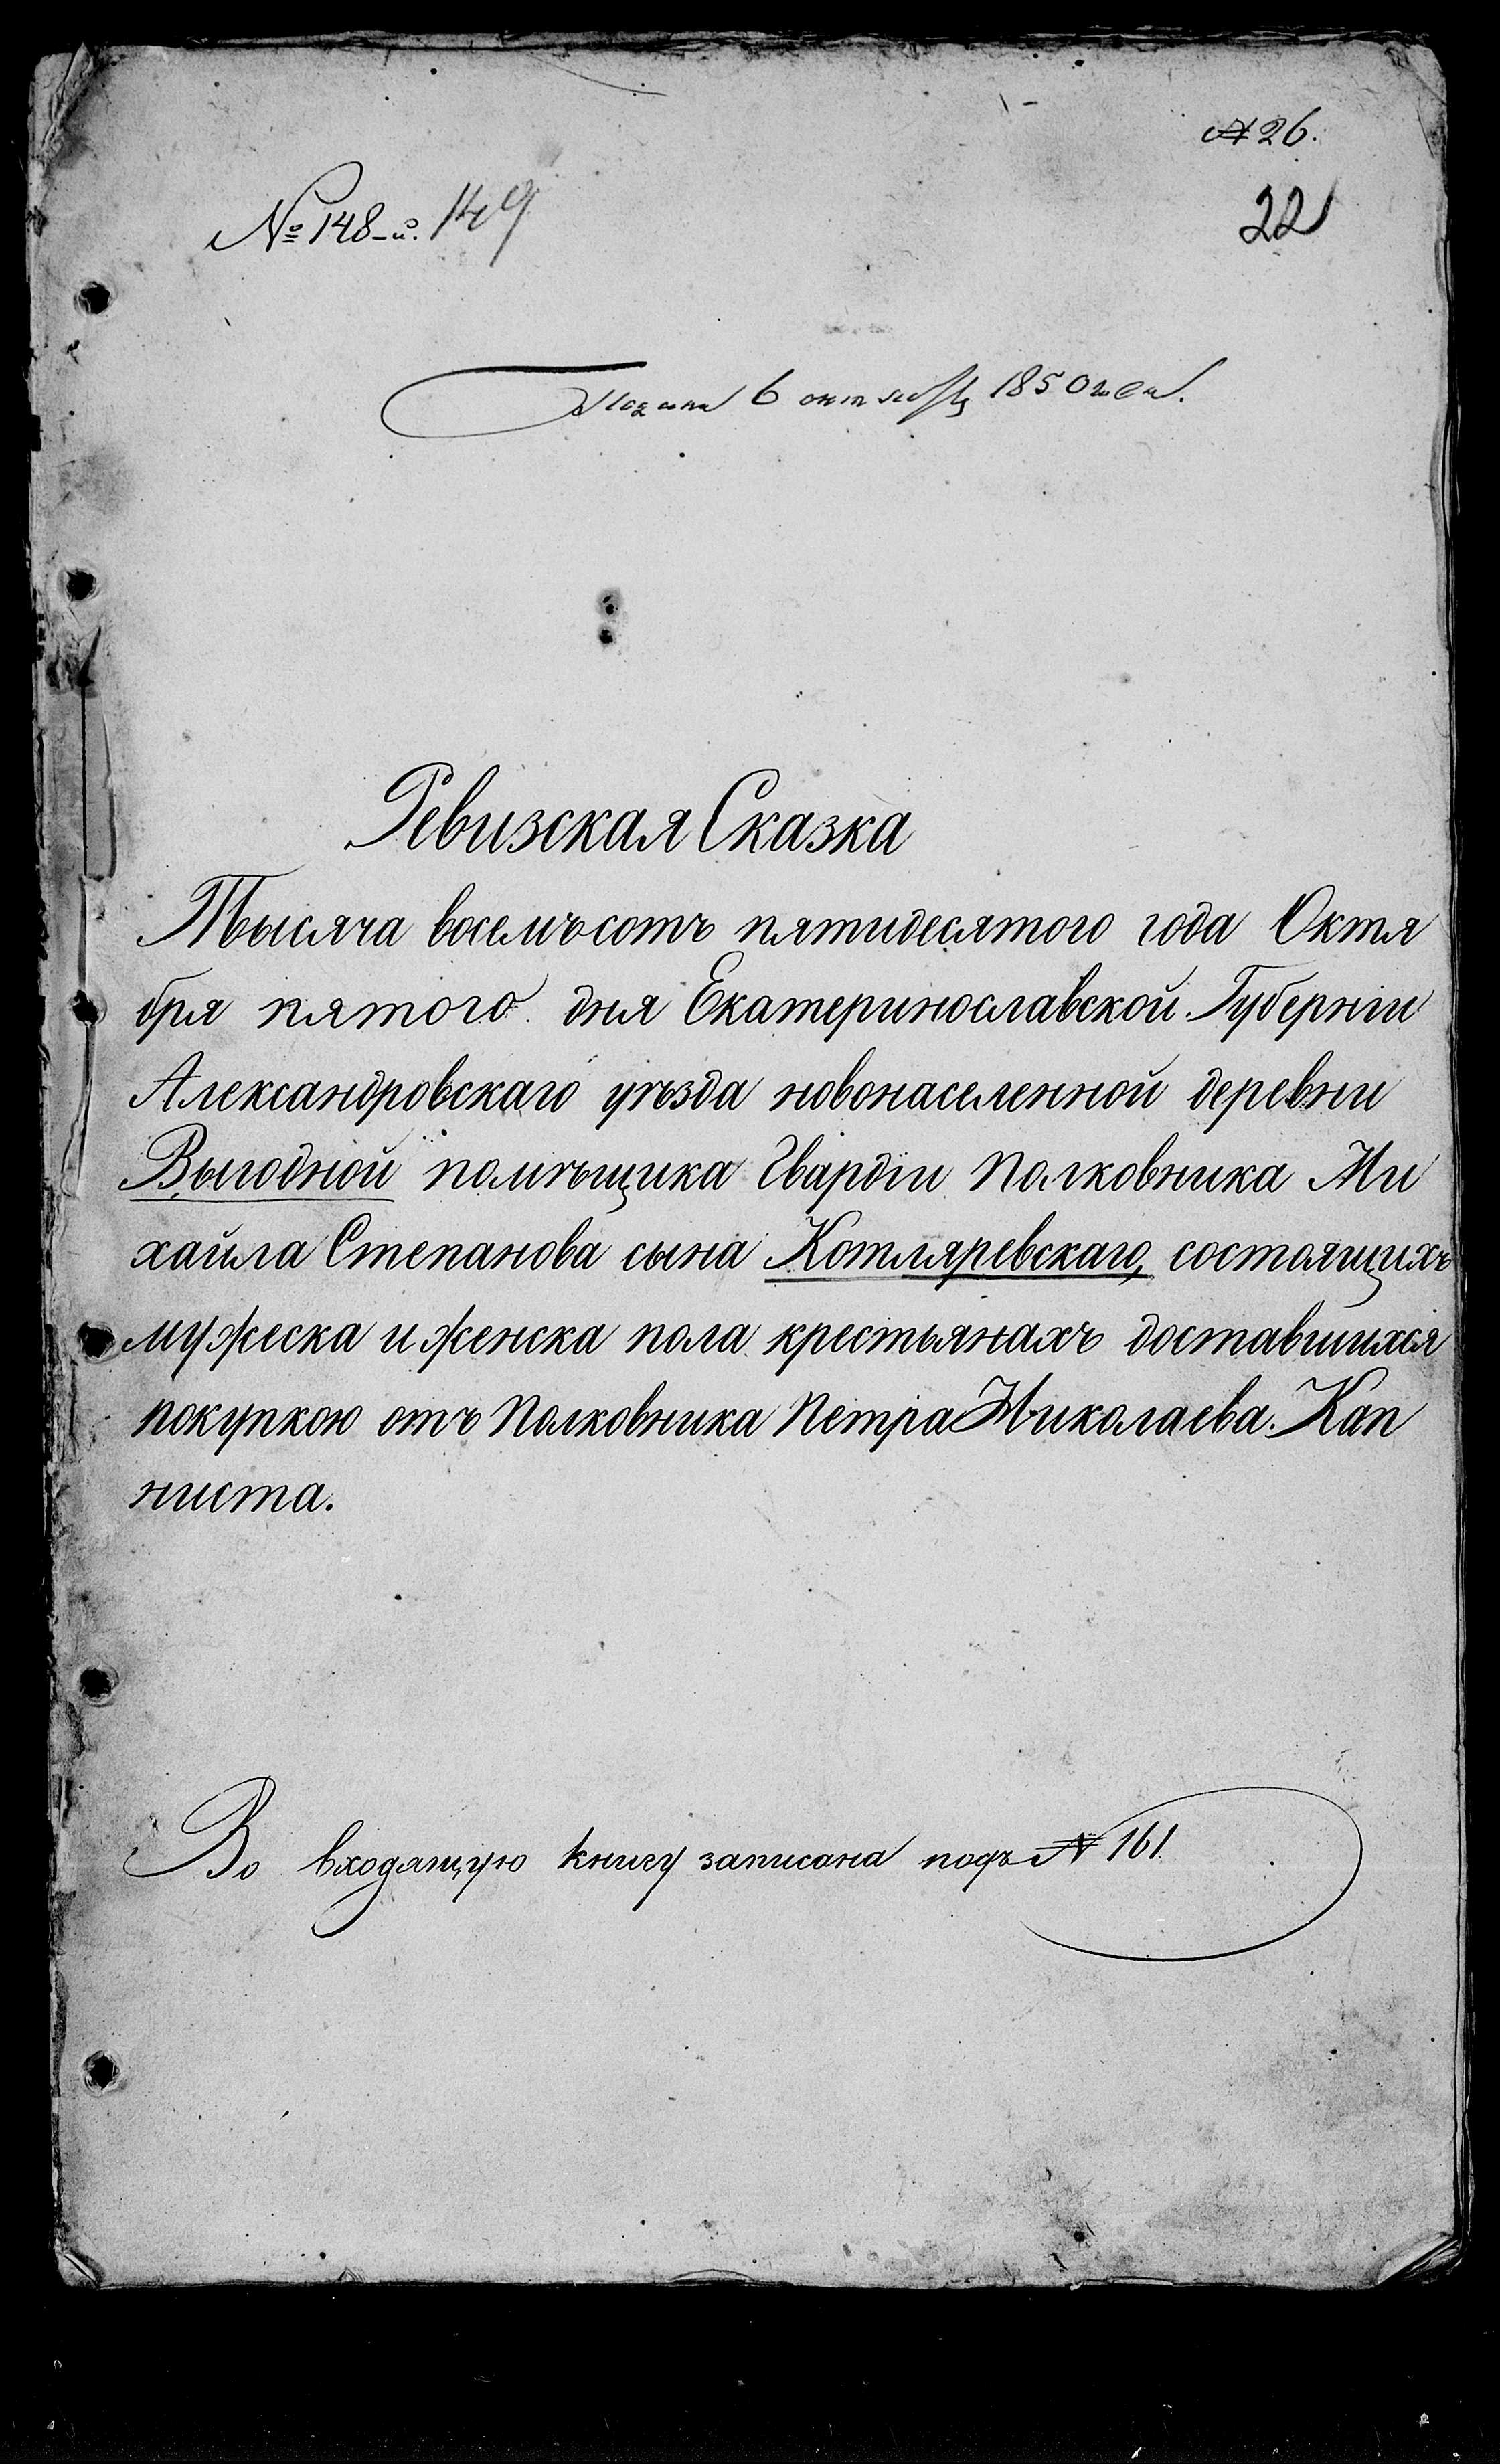 № 26.
№ 148-й. 149
22
Подана 6 октября 1850 года.
Ревизская Сказка
Тысяча восемъсотъ пятидесятого года Октя
бря пятого дня Екатеринославской Губерніи
Александровскаго уѣзда новонаселенной деревни
Выгодной помѣщика Гвардіи Полковника Ми
хайла Степанова сына Котляревскаго, состоящихъ
мужеска и женска пола крестьянахъ доставшихся
покупкою отъ Полковника Петра Николаева Кап
ниста.
Во входящую книгу записана подъ № 161